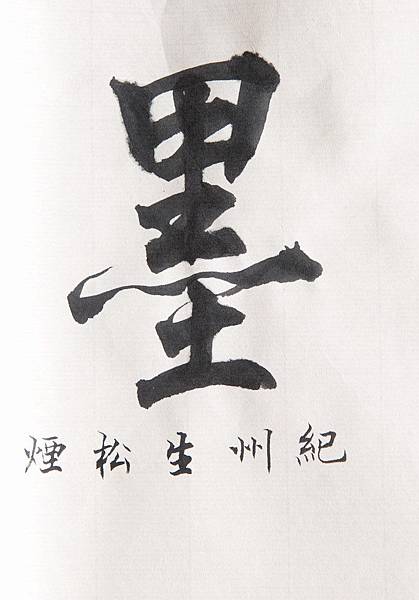 墨
紀州生松煙